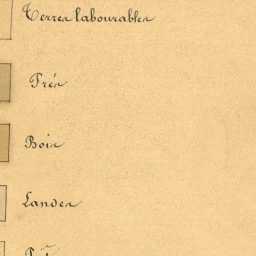 Terres labourables
Prés
Bois
Landes